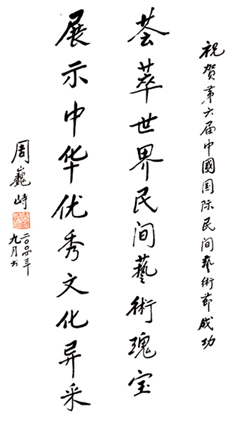 祝贺第六届中國国际民间藝術節成功
荟萃世界民间藝術瑰宝
展示中华优秀文化异采
周巍峙
二〇〇年
九月